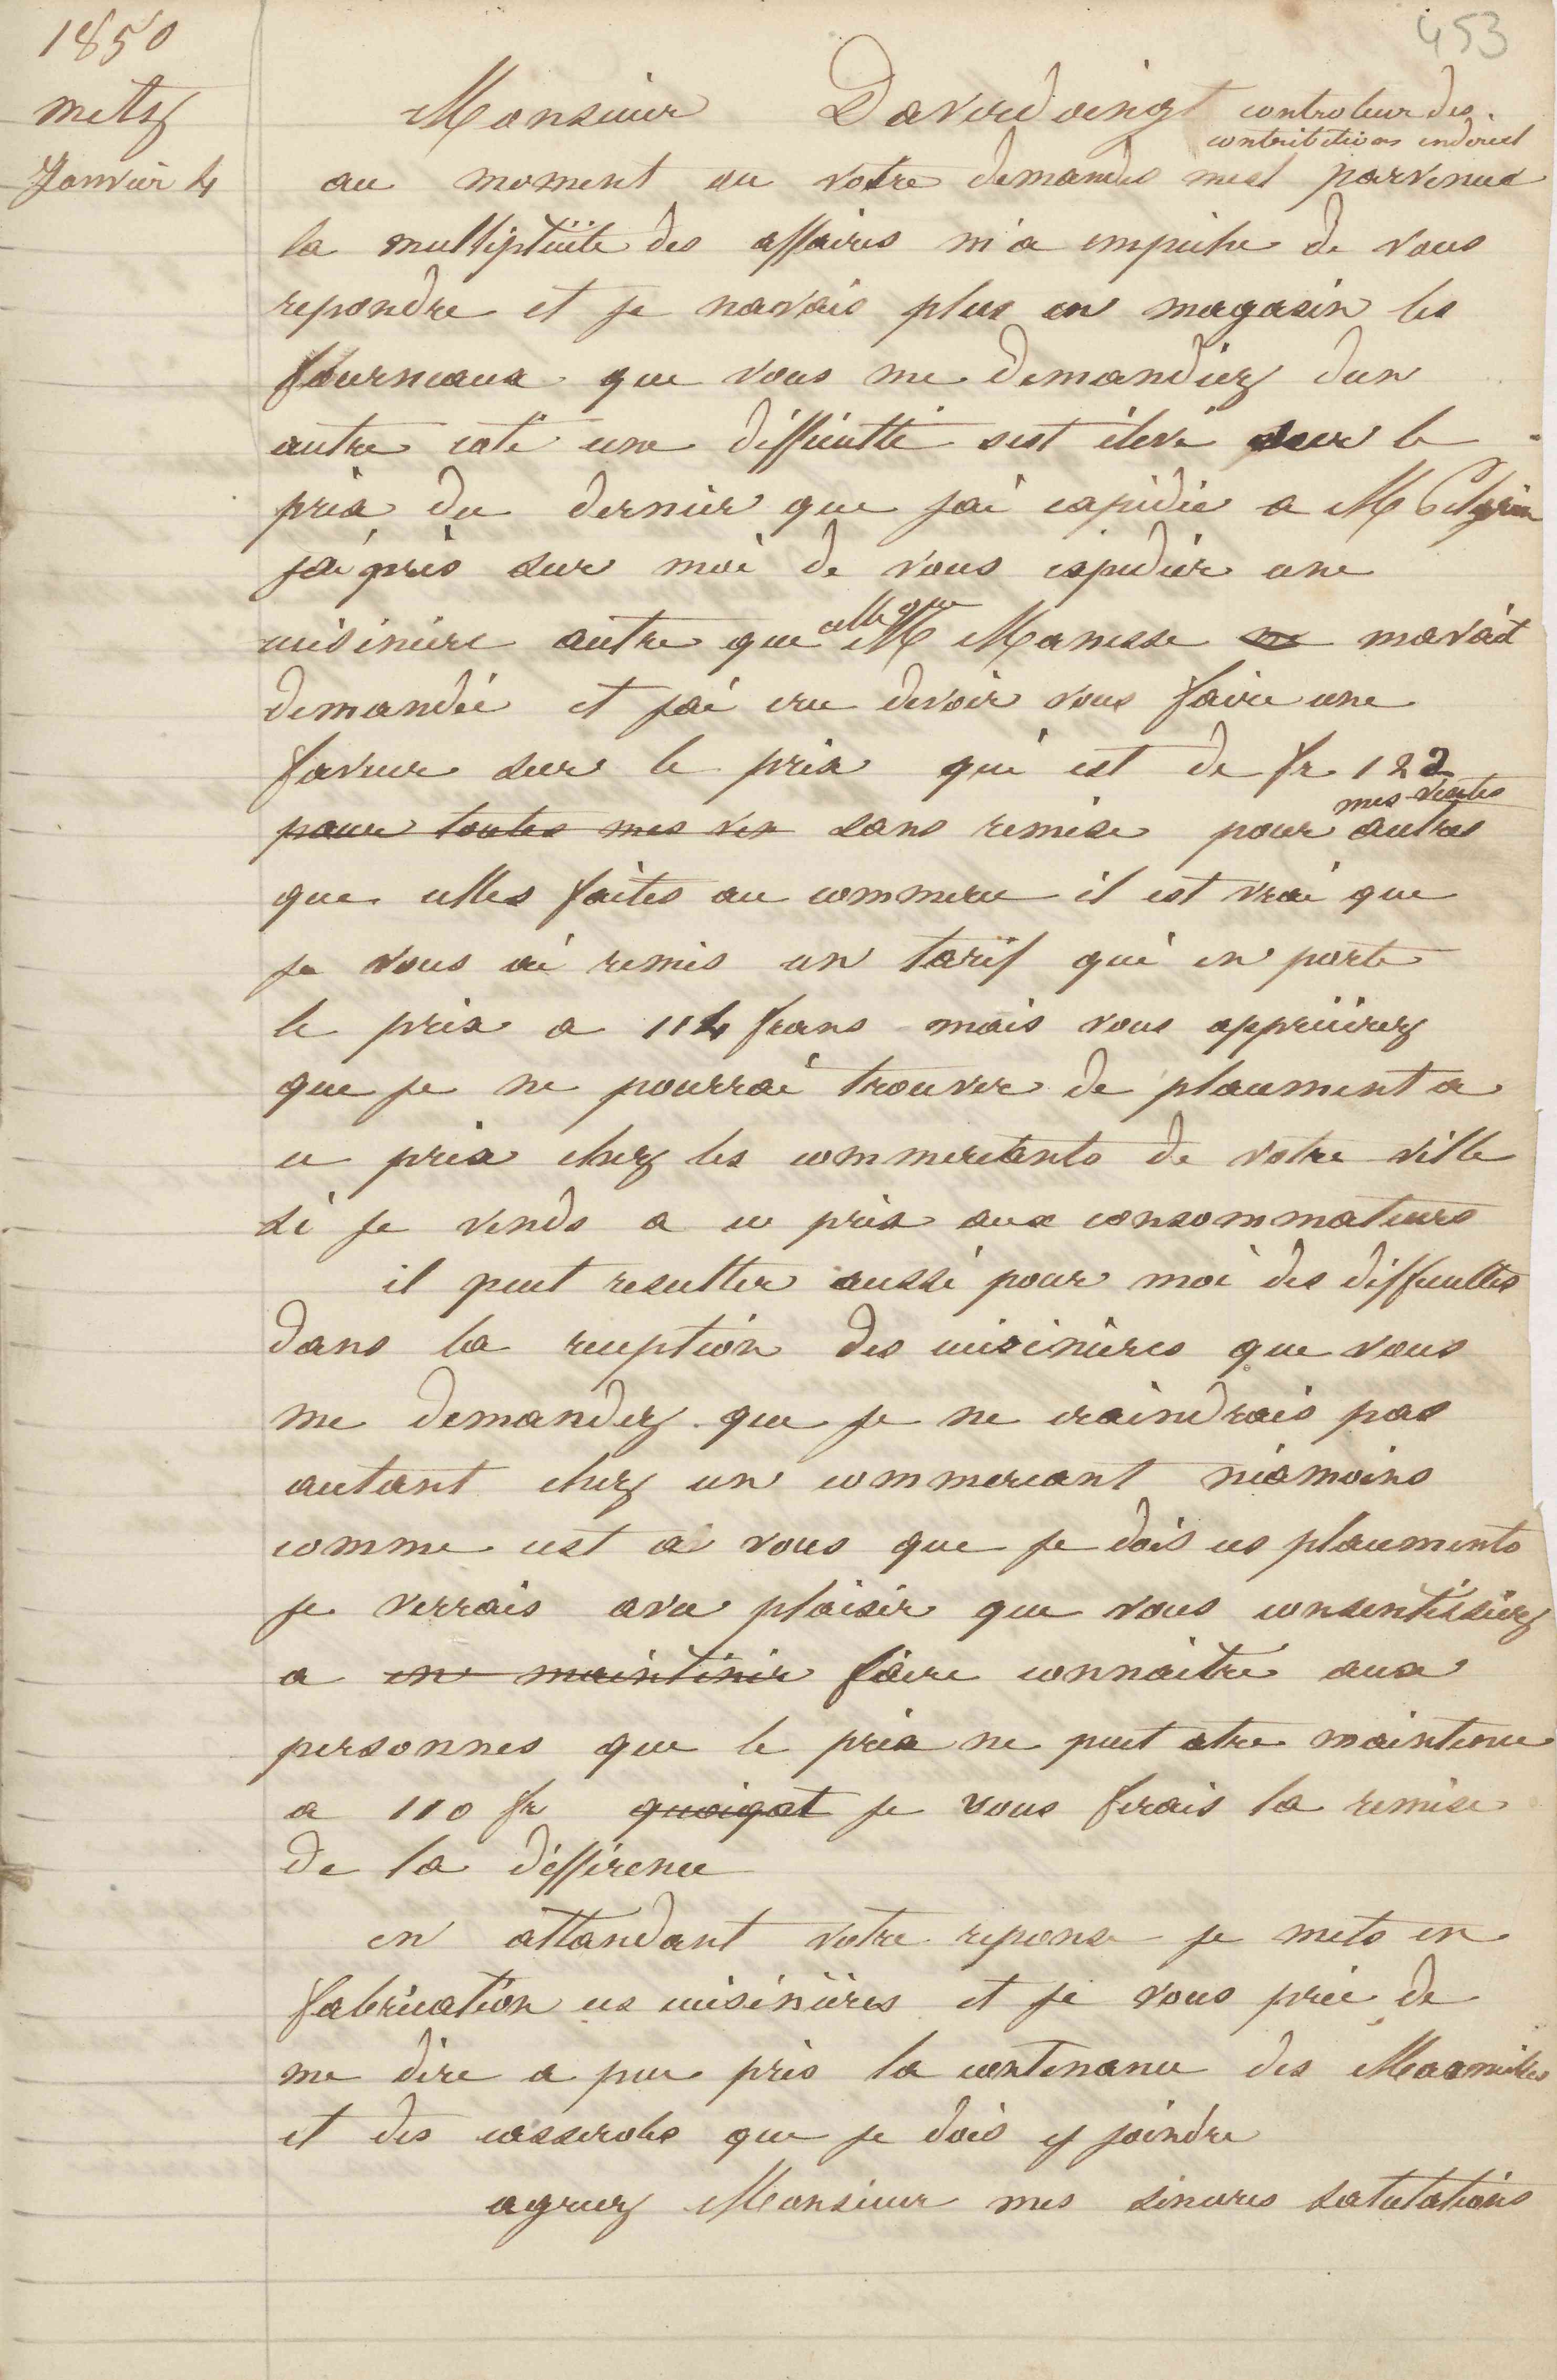 453
1850
metz
Janvier 4
Monsieur Daverdoing controleur des
contribitions indirect
au moment ou votre demandes mest parvenue
la multiplicite des affaires m'a empeche de vous
repondre et je navais plus en magasin les
fourneaux que vous me demandiez dun
autre coté une difficulté sest élevé sur le
prix du dernier que jai expidié a M Pelgrin
jai pris sur moi de vous expedier une
cuisiniere autre que celle que M Manesse ne mavait
demandée et jai cru devoir vous faire une
faveur sur le prix qui est de fr 122
pour toutes mes ven sans remise pour mes ventes autres
que celles faites au commerce il est vrai que
je vous ai remis un tarif qui en porte
le prix a 114 frans mais vous apprecirez
que je ne pourrai trouver de placement a
ce prix chez les commercants de votre ville
si je vends a ce prix aux consommateurs
il peut resulter aussi pour moi des difficultes
dans la reception des cuisinieres que vous
me demandez que je ne craindrais pas
autant chez un commercant néamoins
comme cest a vous que je dois ces placements
je verrais avec plaisir que vous consentissiez
a en maintenir faire connaitre aux
personnes que le prix ne peut etre maintenu
a 110 fr quoiqot je vous ferais la remise
de la difference
en attandant votre reponse je mets en
fabrication ces cuisinieres et je vous prie de
me dire a peu pres la contenance des Marmites
et des casseroles que je dois y joindre
agreez Monsieur mes sinceres salutations